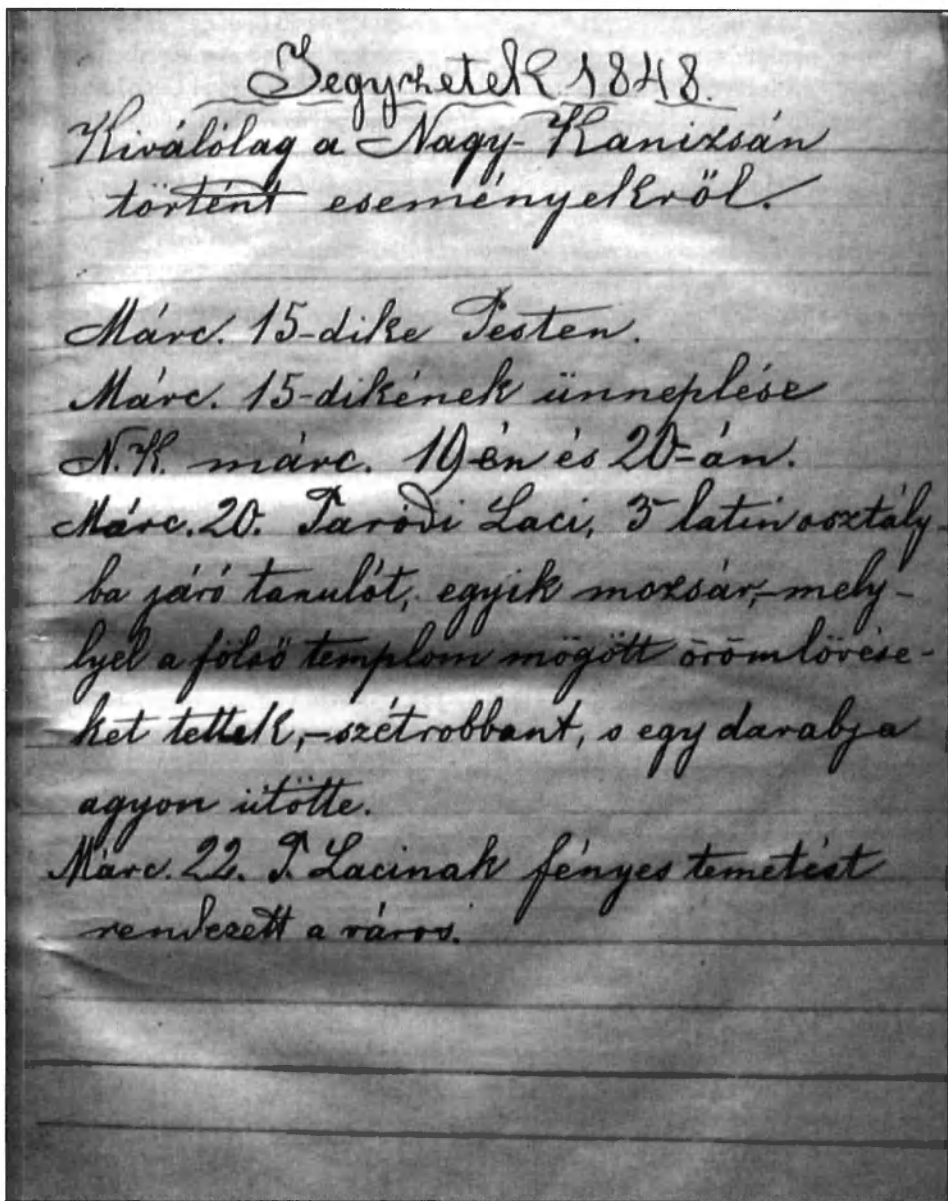 Jegyzetek 1848.
Kiválólag a Nagy-Kanizsán
történt eseményekről.
Márc. 15-dike Pesten.
Márc. 15-dikének ünneplése
N.K. márc. 19-én és 20-án.
Márc. 20. Parodi Laci, 3 latin osztály
ba járó tanulót, egyik mozsár,-mely-
lyel a fölső templom mögött örömlövése-
ket tettek,-szétrobbant, s egy darabja
agyon ütötte.
Márc. 22. P. Lacinak fényes temetést
rendezett a város.